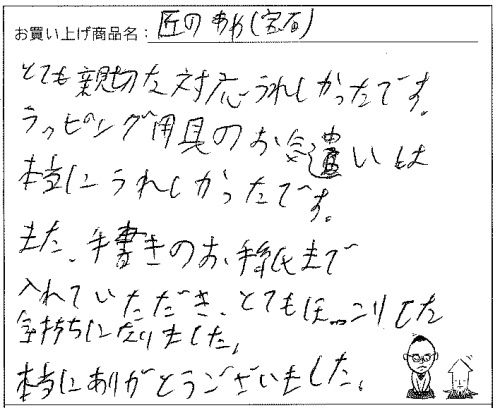 お買い上げ商品名：匠のわ(宝石)
とても親切な対応うれしかったです。
ラッピング用具のお気遣いは
本当にうれしかったです。
また、手書きのお手紙まで
入れていただき、とてもほっこりした
気持ちになりました。
本当にありがとうございました。